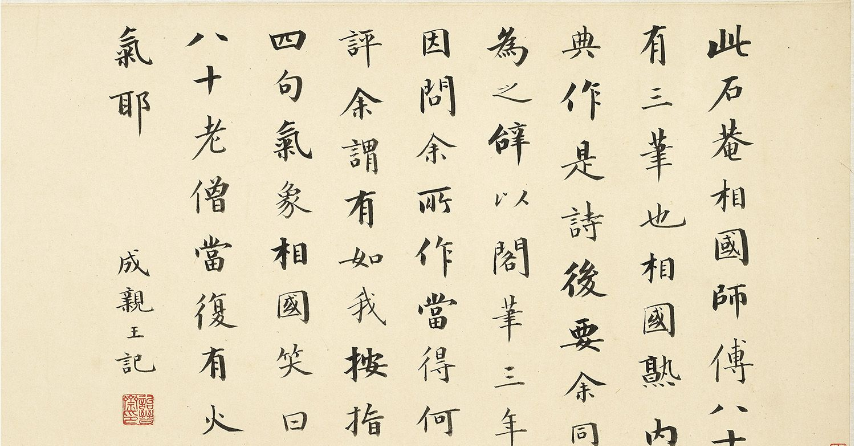 此石菴相國師傅八十
有三筆也相國熟內
典作是詩後要余同
為之辭以閣筆三年
因問余所作當得何
評余謂有如我按指
四句氣象相國笑曰
八十老僧當復有火
氣耶
成親王記